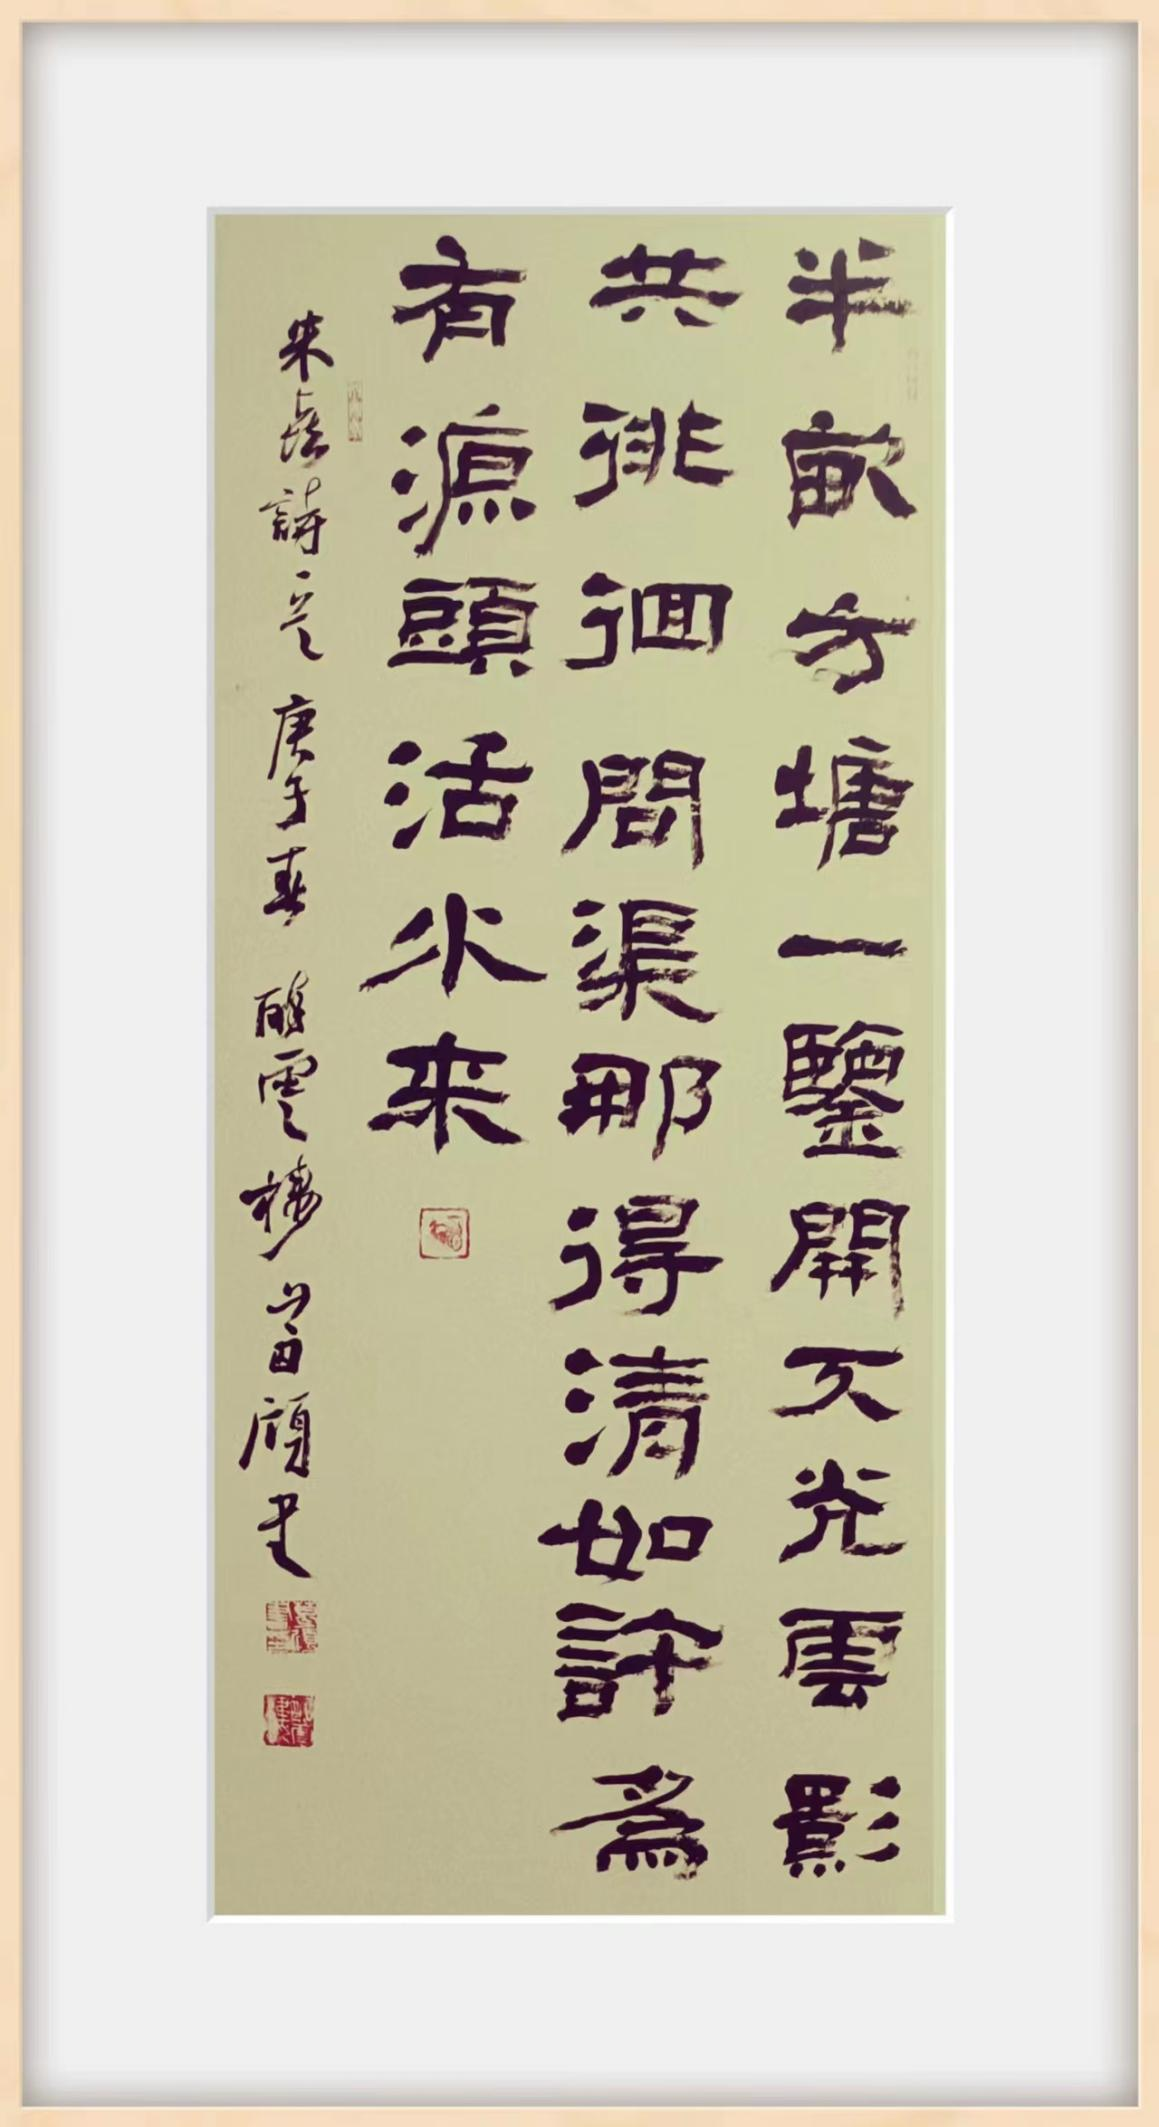 半畝方塘一鑒開天光雲影
共徘徊問渠那得清如許為
有源頭活水来
朱熹詩一首 庚子春 醉雲樓 首順書